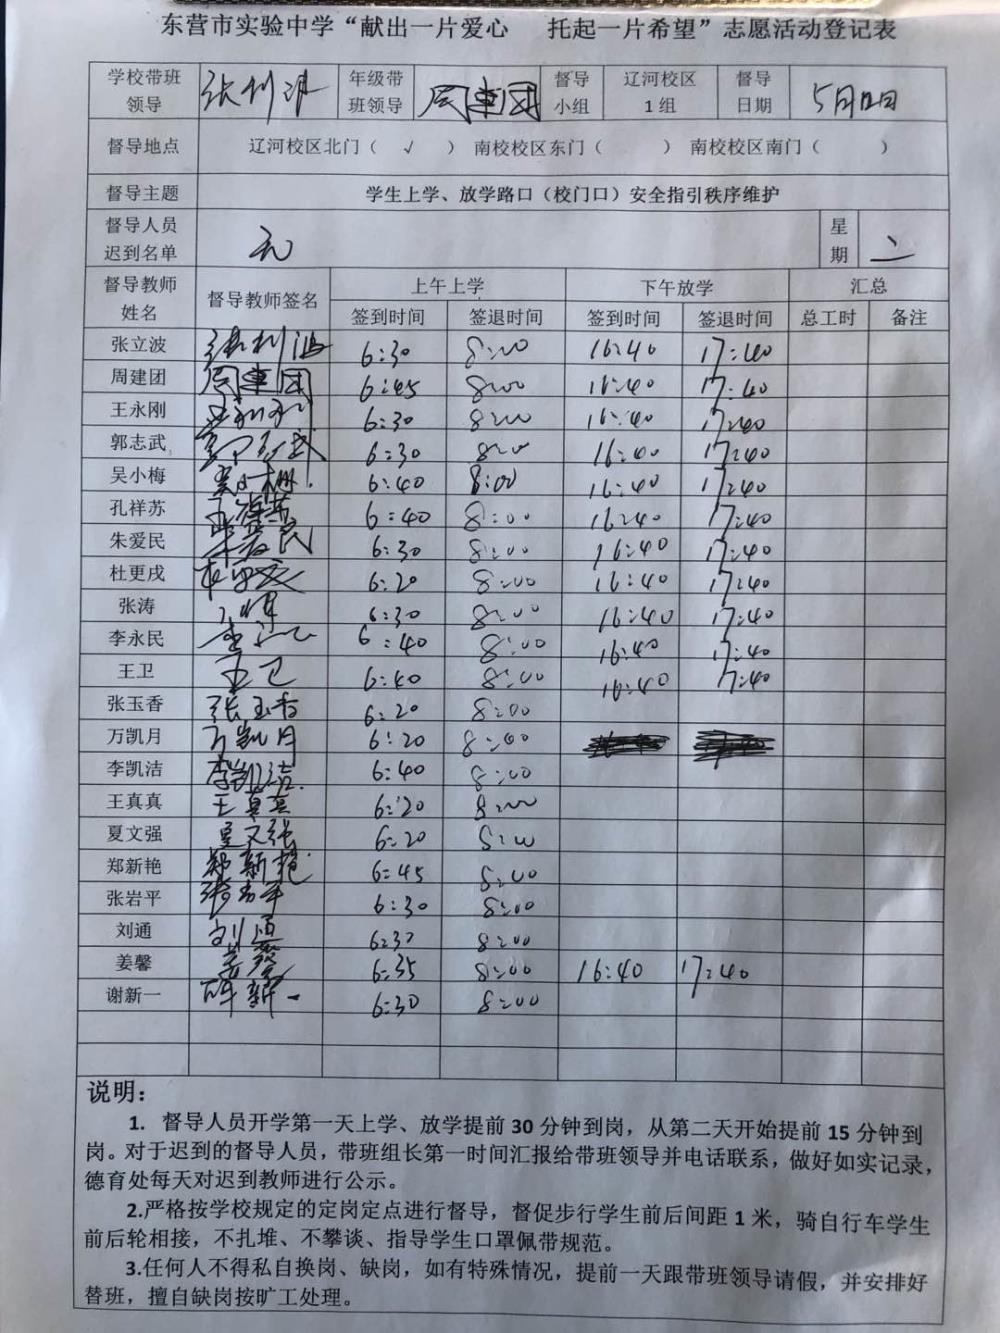 东营市实验中学“献出一片爱心　托起一片希望”志愿活动登记表
学校带班领导 张利波 年级带班领导 周建团 督导小组 辽河校区1组 督导日期 5月12日
督导地点 辽河校区北门（ √ ） 南校校区东门（ ） 南校校区南门（ ）
督导主题 学生上学、放学路口（校门口）安全指引秩序维护
督导人员迟到名单 无 星期 二
督导教师姓名 督导教师签名 上午上学 下午放学 汇总
签到时间 签退时间 签到时间 签退时间 总工时 备注
张立波 张利波 6:30 8:00 16:40 17:40
周建团 周建团 6:45 8:00 16:40 17:40
王永刚 王永刚 6:30 8:00 16:40 17:40
郭志武 郭志武 6:30 8:00 16:40 17:40
吴小梅 吴小梅 6:40 8:00 16:40 17:40
孔祥苏 孔祥苏 6:40 8:00 16:40 17:40
朱爱民 朱爱民 6:30 8:00 16:40 17:40
杜更戌 6:20 8:00 16:40 17:40
张涛 6:30 8:00 16:40 17:40
李永民 6:40 8:00 16:40 17:40
王卫 王卫 6:40 8:00 16:40 17:40
张玉香 张玉香 6:20 8:00
万凯月 万凯月 6:20 8:00
李凯洁 李凯洁 6:40 8:00
王真真 王真真 6:20 8:00
夏文强 夏文强 6:20 8:00
郑新艳 郑新艳 6:45 8:00
张岩平 张岩平 6:30 8:00
刘通 刘通 6:30 8:00
姜馨 姜馨 6:35 8:00 16:40 17:40
谢新一 谢新一 6:30 8:00
说明：
1. 督导人员开学第一天上学、放学提前 30 分钟到岗，从第二天开始提前 15 分钟到
岗。对于迟到的督导人员，带班组长第一时间汇报给带班领导并电话联系，做好如实记录，
德育处每天对迟到教师进行公示。
2.严格按学校规定的定岗定点进行督导，督促步行学生前后间距 1 米，骑自行车学生
前后轮相接，不扎堆、不攀谈、指导学生口罩佩带规范。
3.任何人不得私自换岗、缺岗，如有特殊情况，提前一天跟带班领导请假，并安排好
替班，擅自缺岗按旷工处理。